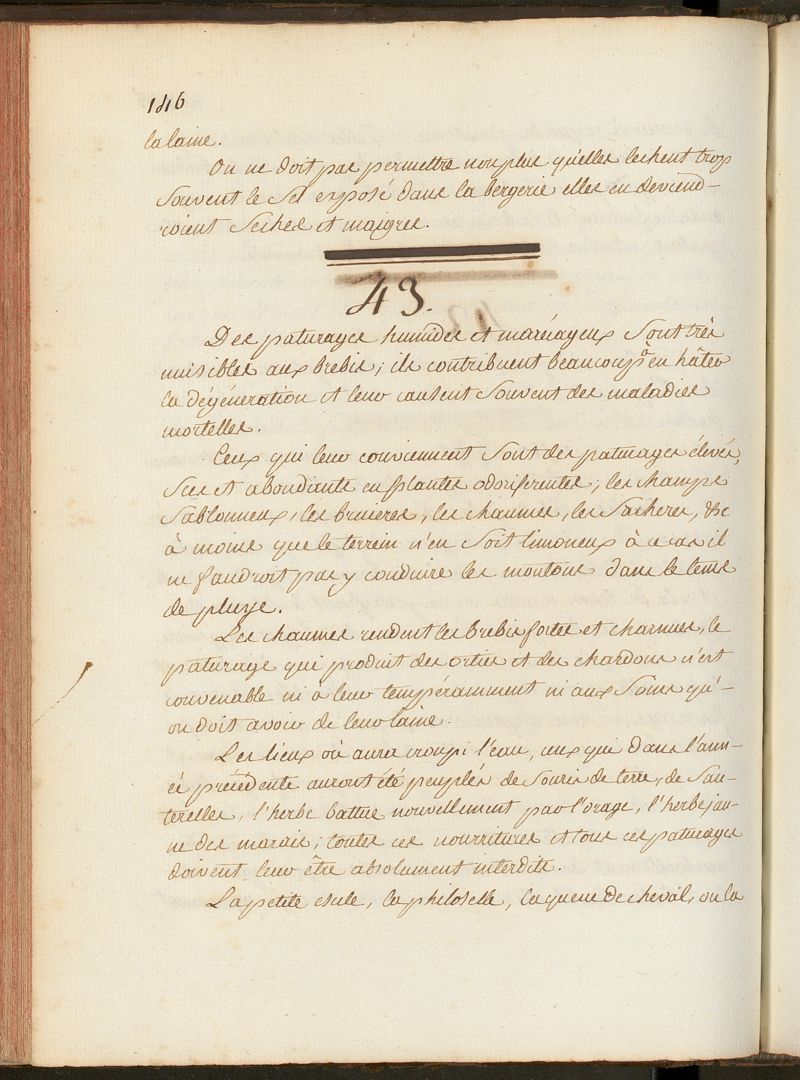 146
la laine.
On ne doit pas permettre non plus qu'elles lechent trop
souvent le sel exposé dans la bergerie elles en deviend-
roient seches et maigres.
43.
Des paturages humides et marécageux sont très
nuisibles aux brebis; ils contribuent beaucoup à en hâter
la dégéneration et leur causent souvent des maladies
mortelles.
Ceux qui leur conviennent sont des paturages élevés,
secs et abondants en plantes odoriferentes; les champs
sablonneux, les bruieres, les chaumes, les jacheres, &c
à moins que le terrein n'en soit limoneux à ce cas il
ne faudroit pas y conduire les moutons dans le tems
de pluye.
Les chaumes rendent les brebis fortes et charnues, le
paturage qui produit des orties et des chardons n'est
convenable ni à leur tempéramment ni aux soins qu'-
on doit avoir de leur laine.
Les lieux où aura croupi l'eau, ceux qui dans l'ann-
ée précédente auront été peuplés de souris de terre, de sau-
terelles, l'herbe battue nouvellement par l'orage, l'herbe jau-
ne des marais; toutes ces nourritures et tous ces paturages
doivent leur être absolument interdits.
La petite esule, la philoselle, la queue de cheval, ou la